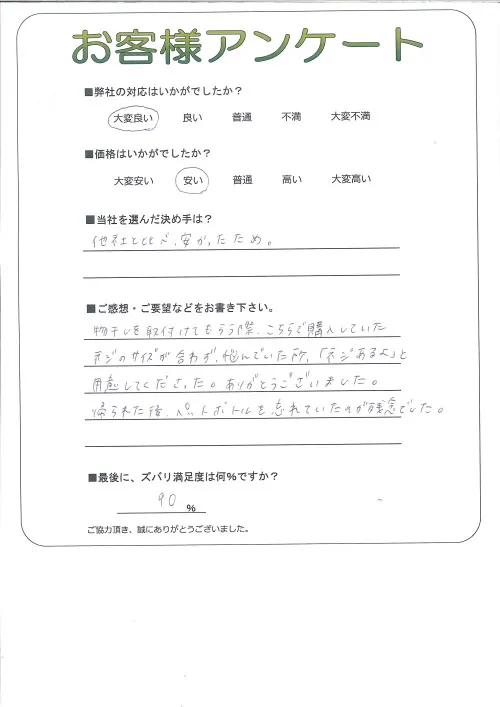 お客様アンケート
■弊社の対応はいかがでしたか？
大変良い 良い 普通 不満 大変不満
■価格はいかがでしたか？
大変安い 安い 普通 高い 大変高い
■当社を選んだ決め手は？
他社と比べ、安かったため。
■ご感想・ご要望などをお書き下さい。
物干しを取付けてもらう際、こちらで購入していた
ネジのサイズが合わず、悩んでいた所、「ネジあるよ」と
用意してくださった。ありがとうございました。
帰られた後、ペットボトルを忘れていたのが残念でした。
■最後に、ズバリ満足度は何%ですか？
90 %
ご協力頂き、誠にありがとうございました。